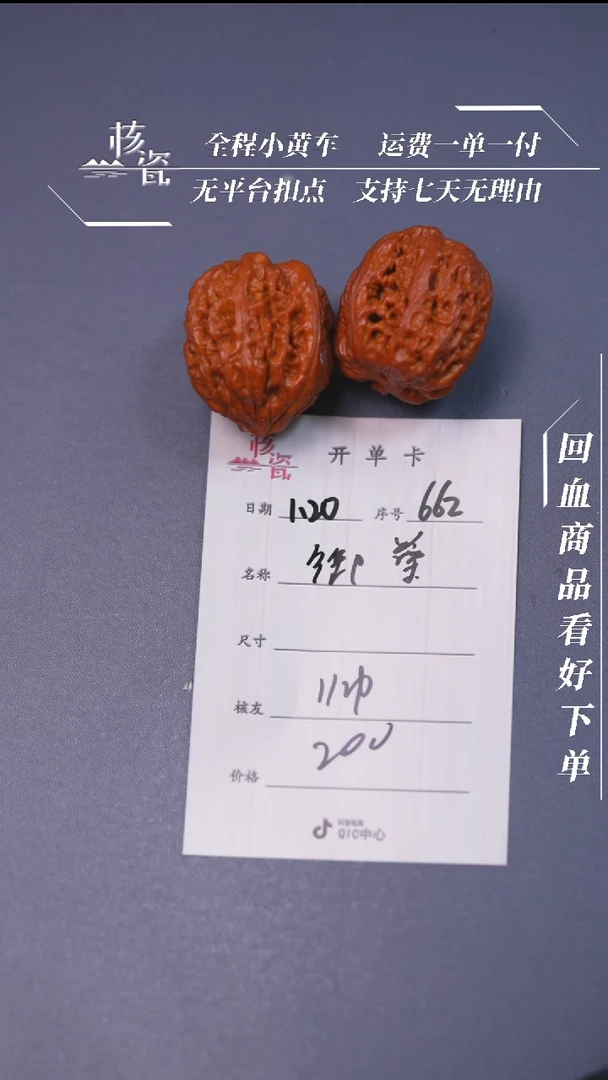 核瓷
全程小黄车 运费一单一付
无平台扣点 支持七天无理由
回血商品看好下单
核瓷
开单卡
日期 1.20 序号 662
名称
尺寸
核友
价格 200
QIC中心